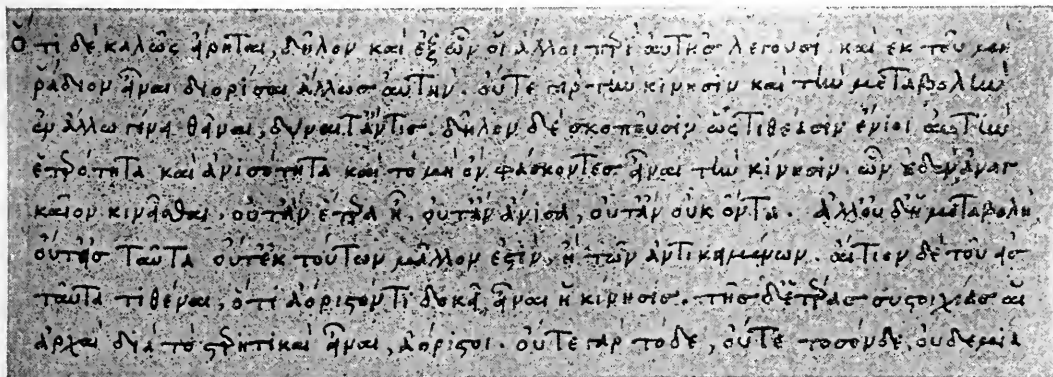 Ὅτι δὲ καλῶς εἴρηται, δῆλον καὶ ἐξ ὧν οἱ ἄλλοι περὶ αὐτῆς λέγουσι. καὶ ἐκ τοῦ μὴ
ῥάδιον εἶναι διορίσαι ἄλλως αὐτήν. οὔτε γὰρ τὴν κίνησιν καὶ τὴν μεταβολὴν
ἐν ἄλλω γένει θεῖναι, δύναιτ' ἄν τις. δῆλον δὲ σκοποῦσιν ὡς τιθέασιν ἔνιοι αὐτὴν
ἑτερότητα καὶ ἀνισότητα καὶ τὸ μὴ ὂν φάσκοντες εἶναι τὴν κίνησιν. ὧν οὐδὲν ἀναγ
καῖον κινεῖσθαι. οὔτ' ἂν ἕτερα ἦ, οὔτ' ἂν ἄνισα, οὔτ' ἂν οὐκ ὄντα. ἀλλ' οὐδ' ἡ μεταβολὴ
οὔτ' εἰς ταῦτα οὔτ' ἐκ τούτων μᾶλλον ἐστὶν, ἢ τῶν ἀντικειμένων. αἴτιον δὲ τοῦ εἰς
ταῦτα τιθέναι, ὅτι ἀόριστόν τι δοκεῖ εἶναι ἡ κίνησις. τῆς δ' ἑτέρας συστοιχίας αἱ
ἀρχαὶ διὰ τὸ στερητικαὶ εἶναι, ἀόριστοι. οὔτε γὰρ τόδε, οὔτε τοσόνδε, οὐδεμία